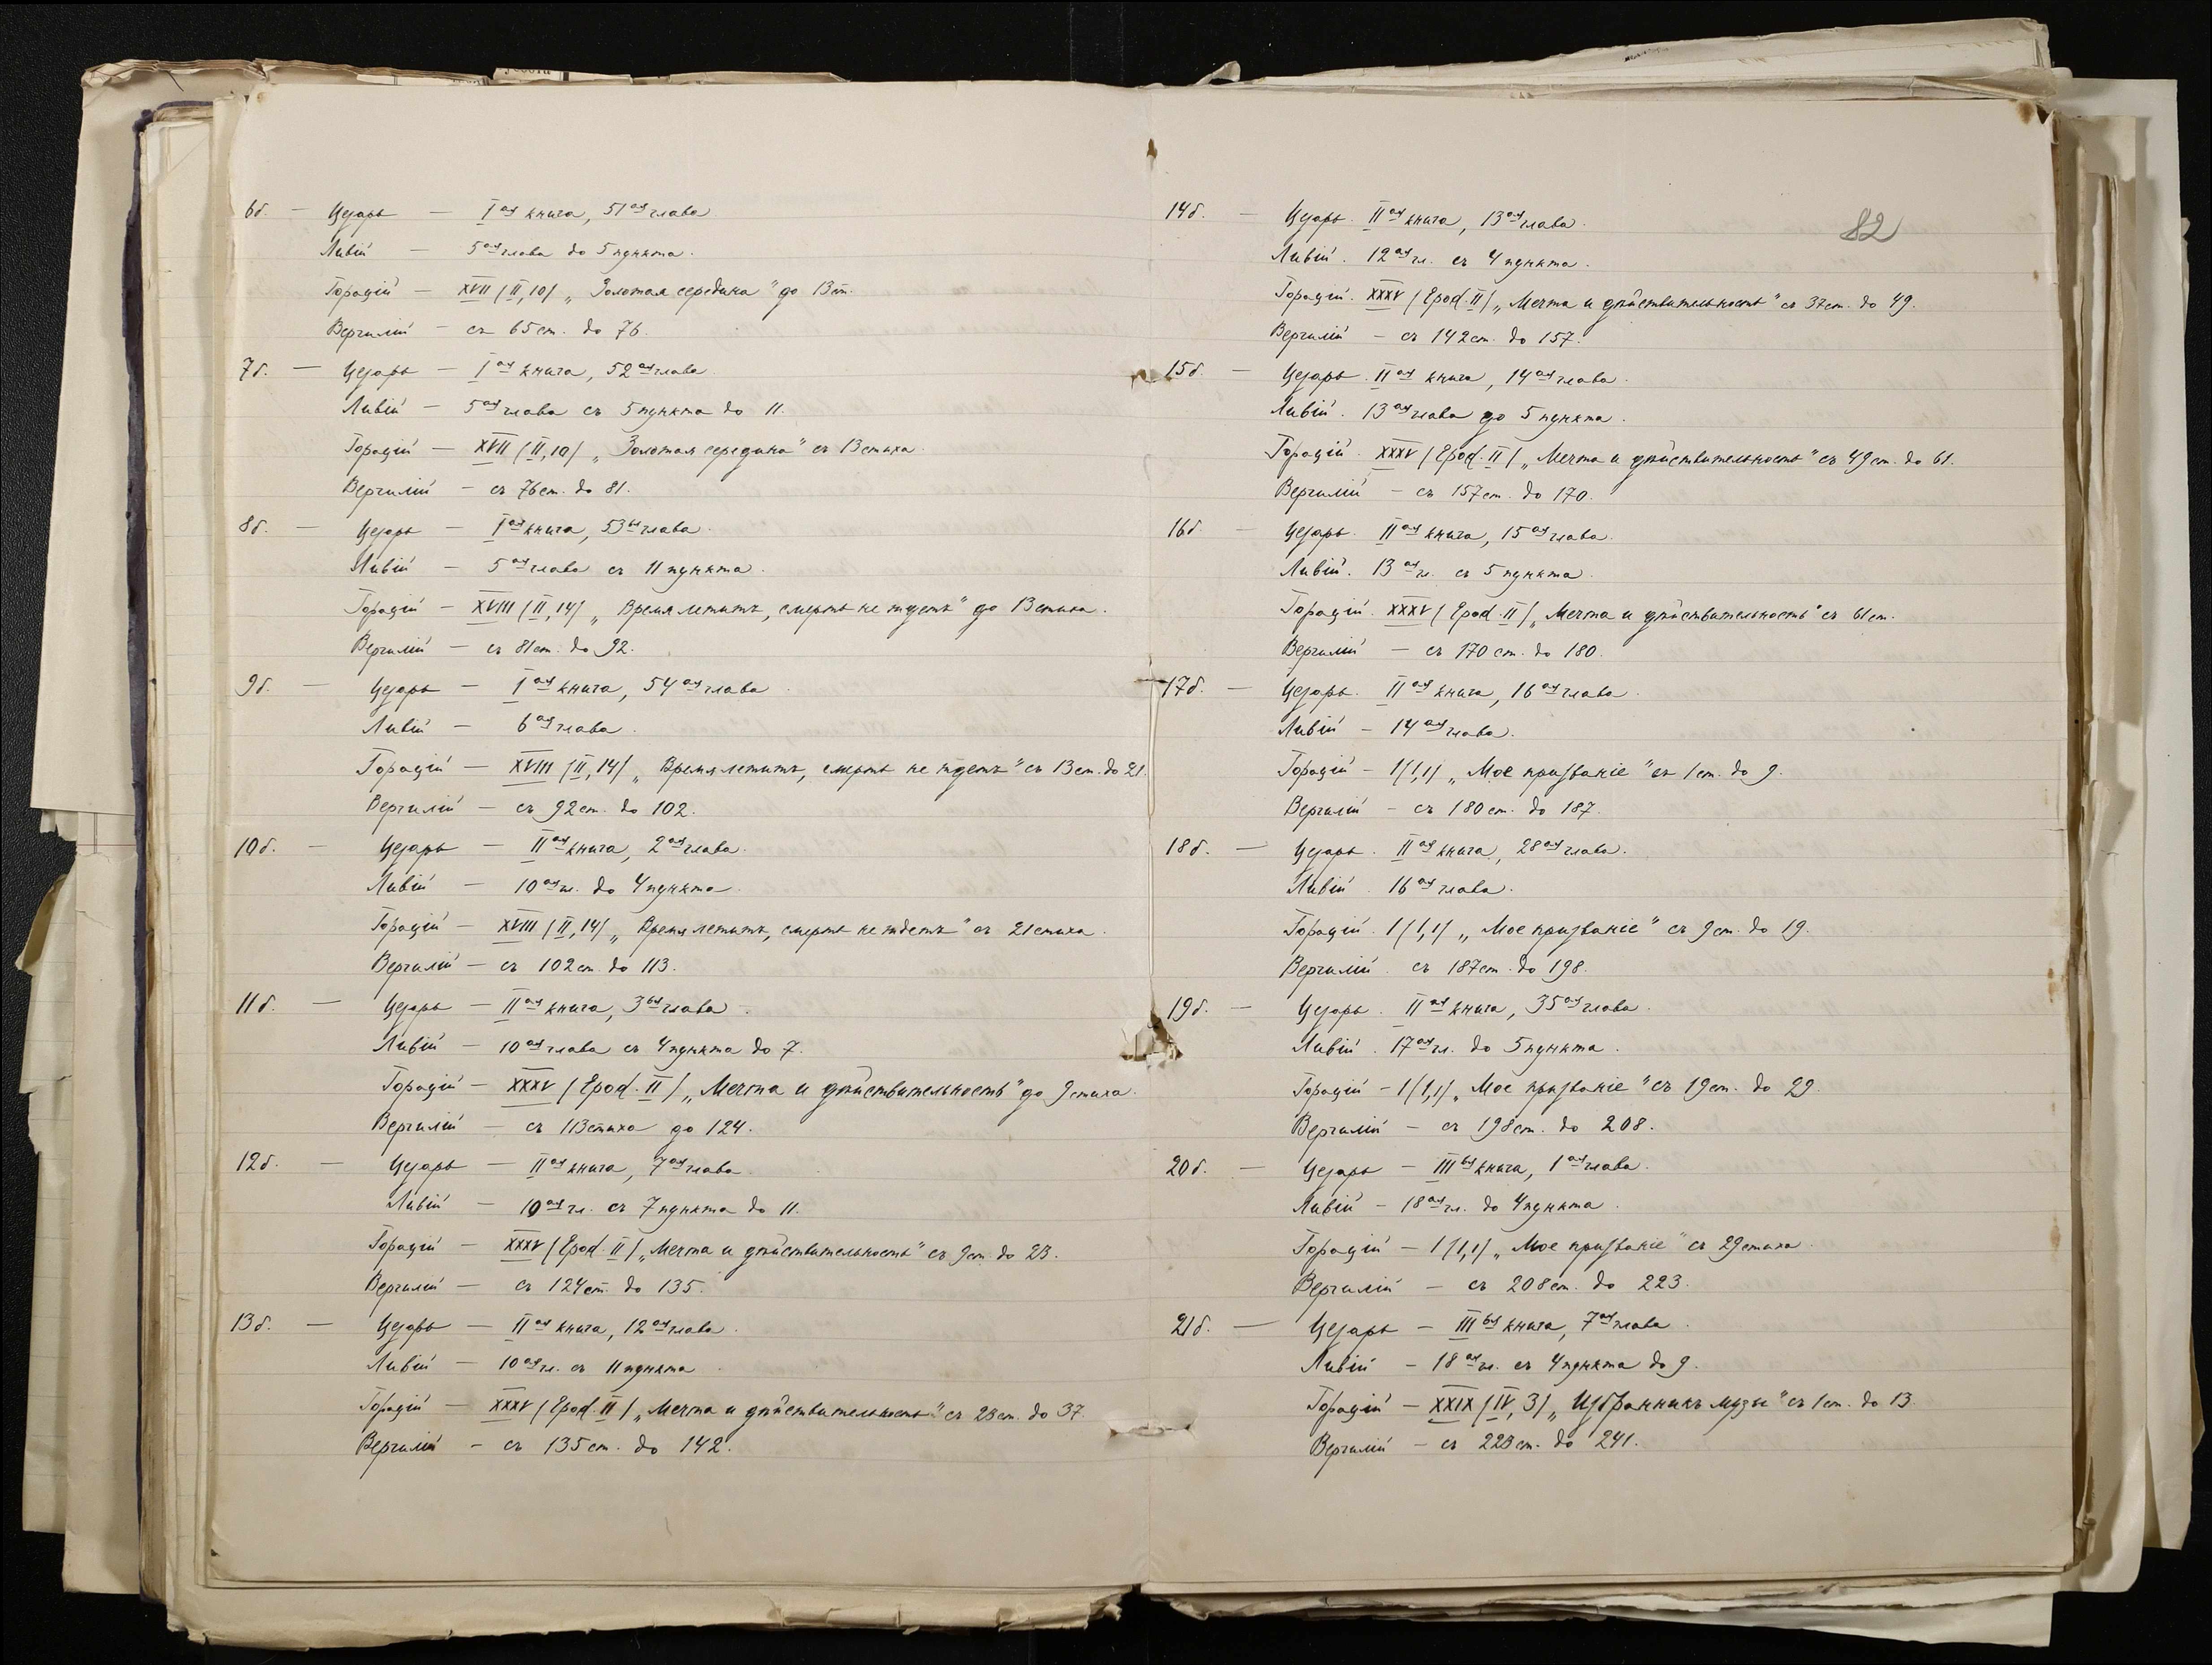 6б. — Цезарь — I ая книга, 51 ая глава.
Ливій — 5 ая глава до 5 пункта.
Горацій — XVII (II, 10) „Золотая середина" до 13 ст.
Вергилій — съ 65 ст. до 76.
7б. — Цезарь — I ая книга, 52 ая глава.
Ливій — 5 ая глава съ 5 пункта до 11.
Горацій — XVII (II, 10) „Золотая середина" съ 13 стиха.
Вергилій — съ 76 ст. до 81.
8б. — Цезарь — I ая книга, 53 ья глава.
Ливій — 5 ая глава съ 11 пункта.
Горацій — XVIII (II, 14) „Время летитъ, смерть не ждетъ" до 13 стиха.
Вергилій — съ 81 ст. до 92.
9б. — Цезарь — I ая книга, 54 ая глава.
Ливій — 6 ая глава.
Горацій — XVIII (II, 14) „Время летитъ, смерть не ждетъ" съ 13 ст. до 21.
Вергилій — съ 92 ст. до 102.
10б. — Цезарь — II ая книга, 2 ая глава.
Ливій — 10 ая гл. до 4 пункта.
Горацій — XVIII (II, 14) „Время летитъ, смерть не ждетъ" съ 21 стиха.
Вергилій — съ 102 ст. до 113.
11б. — Цезарь — II ая книга, 3 ья глава.
Ливій — 10 ая глава съ 4 пункта до 7.
Горацій — XXXV (Epod. II) „Мечта и дѣйствительность" до 9 стиха.
Вергилій — съ 113 стиха до 124.
12б. — Цезарь — II ая книга, 7 ая глава.
Ливій — 10 ая гл. съ 7 пункта до 11.
Горацій — XXXV (Epod. II) „Мечта и дѣйствительность" съ 9 ст. до 23.
Вергилій — съ 124 ст. до 135.
13б. — Цезарь — II ая книга, 12 ая глава.
Ливій — 10 ая гл. съ 11 пункта
Горацій — XXXV (Epod. II) „Мечта и дѣйствительность" съ 23 ст. до 37.
Вергилій — съ 135 ст. до 142.
82
14б. — Цезарь. II ая книга, 13 ая глава.
Ливій. 12 ая гл. съ 4 пункта.
Горацій. XXXV (Epod. II) „Мечта и дѣйствительность" съ 37 ст. до 49.
Вергилій — съ 142 ст. до 157.
15б. — Цезарь. II ая книга, 14 ая глава.
Ливій. 13 ая глава до 5 пункта.
Горацій. XXXV (Epod. II) „Мечта и дѣйствительность" съ 49 ст. до 61.
Вергилій — съ 157 ст. до 170.
16б. — Цезарь. II ая книга, 15 ая глава.
Ливій. 13 ая гл. съ 5 пункта.
Горацій. XXXV (Epod. II) „Мечта и дѣйствительность" съ 61 ст.
Вергилій — съ 170 ст. до 180.
17б. — Цезарь. II ая книга, 16 ая глава.
Ливій — 14 ая глава.
Горацій — 1 (1,1) „Мое призваніе" съ 1 ст. до 9.
Вергилій — съ 180 ст. до 187.
18б. — Цезарь. II ая книга, 28 ая глава.
Ливій. 16 ая глава.
Горацій. 1 (1,1) „Мое призваніе" съ 9 ст. до 19.
Вергилій. съ 187 ст. до 198.
19б. — Цезарь. II ая книга, 35 ая глава.
Ливій. 17 ая гл. до 5 пункта.
Горацій — 1 (1,1) „Мое призваніе" съ 19 ст. до 29.
Вергилій — съ 198 ст. до 208.
20б. — Цезарь — III ья книга, 1 ая глава.
Ливій — 18 ая гл. до 4 пункта.
Горацій — 1 (1,1) „Мое призваніе" съ 29 стиха.
Вергилій — съ 208 ст. до 223.
21б. — Цезарь — III ья книга, 7 ая глава.
Ливій — 18 ая гл. съ 4 пункта до 9.
Горацій — XXIX (IV, 3) „Избранникъ музы" съ 1 ст. до 13.
Вергилій — съ 223 ст. до 241.